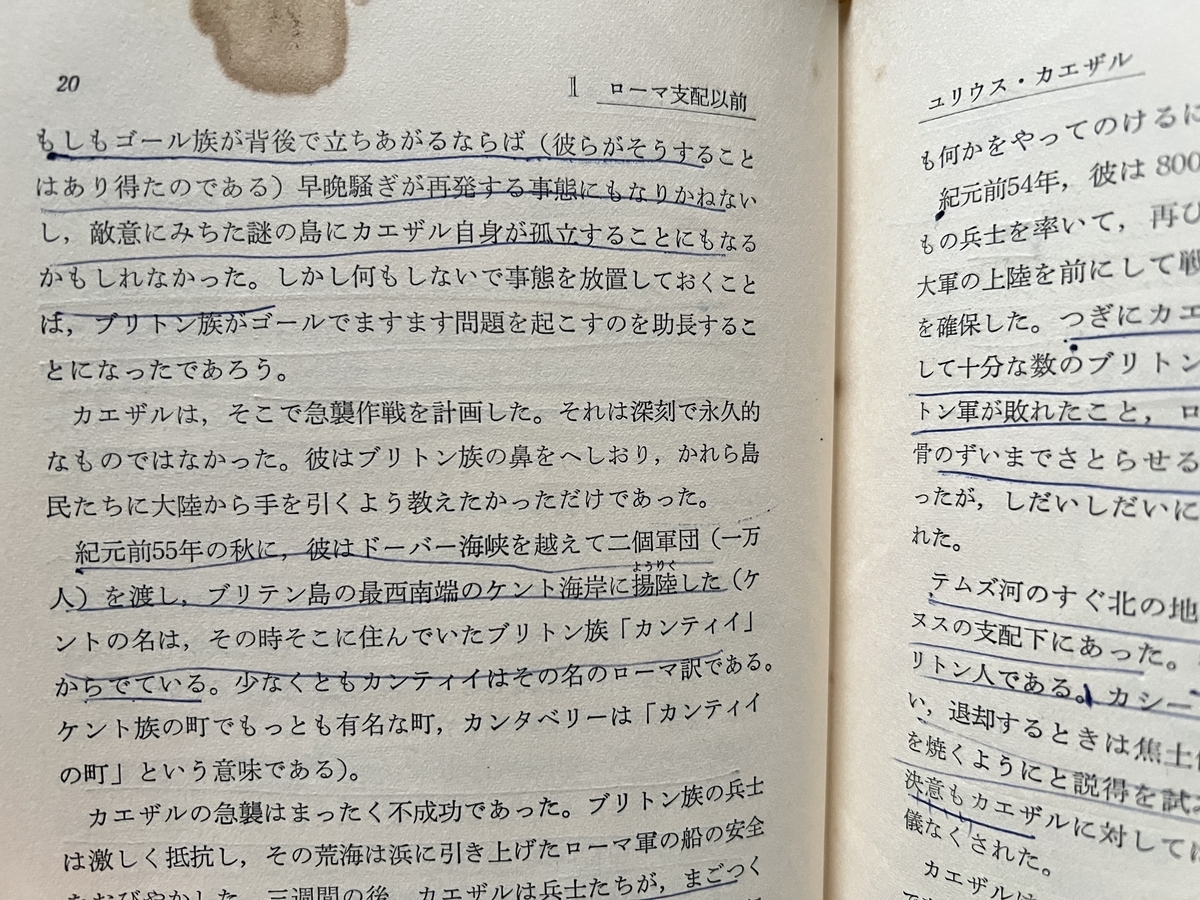 20
1 ローマ支配以前
もしもゴール族が背後で立ちあがるならば（彼らがそうすること
はあり得たのである）早晩騒ぎが再発する事態にもなりかねない
し，敵意にみちた謎の島にカエザル自身が孤立することにもなる
かもしれなかった。しかし何もしないで事態を放置しておくこと
は，ブリトン族がゴールでますます問題を起こすのを助長するこ
とになったであろう。
カエザルは，そこで急襲作戦を計画した。それは深刻で永久的
なものではなかった。彼はブリトン族の鼻をへしおり，かれら島
民たちに大陸から手を引くよう教えたかっただけであった。
紀元前55年の秋に，彼はドーバー海峡を越えて二個軍団（一万
ようりく
人）を渡し，ブリテン島の最西南端のケント海岸に揚陸した（ケ
ントの名は，その時そこに住んでいたブリトン族「カンティイ」
からでている。少なくともカンティイはその名のローマ訳である。
ケント族の町でもっとも有名な町，カンタベリーは「カンティイ
の町」という意味である）。
カエザルの急襲はまったく不成功であった。ブリトン族の兵士
は激しく抵抗し，その荒海は浜に引き上げたローマ軍の船の安全
をおびやかした。三週間の後，カエザルは兵士たちが，まごつく
ユリウス・カエザル
も何かをやってのけるに
紀元前54年，彼は 800
もの兵士を率いて，再び
大軍の上陸を前にして戦
を確保した。つぎにカエ
して十分な数のブリトン
トン軍が敗れたこと，ロ
骨のずいまでさとらせる
ったが，しだいしだいに
れた。
テムズ河のすぐ北の地
ヌスの支配下にあった。
リトン人である。カシー
い，退却するときは焦土
を焼くようにと説得を試
決意もカエザルに対しては
儀なくされた。
カエザルは